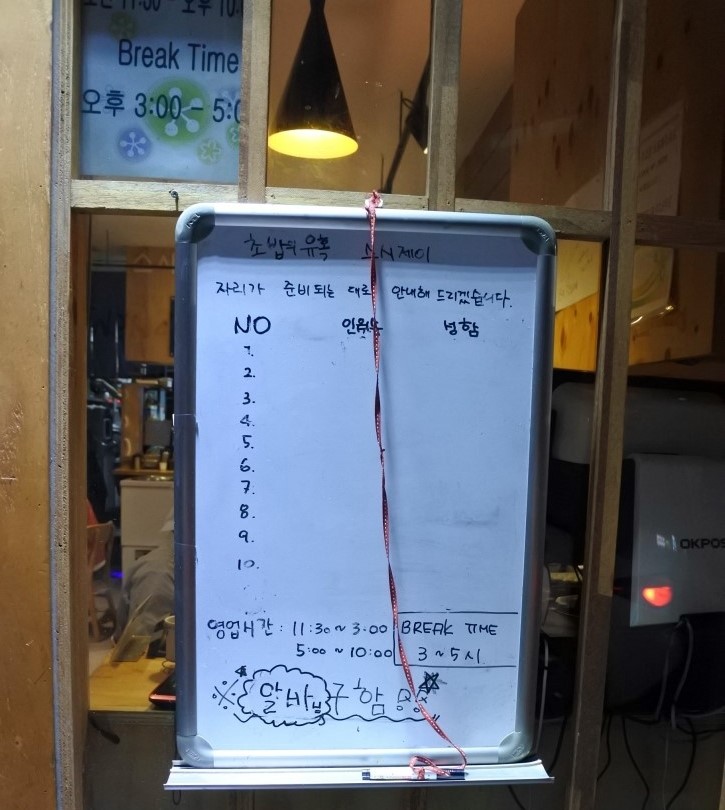 Break Time
오후 3:00 - 5:0
초밥의 유혹
자리가 준비되는 대로 안내해 드리겠습니다.
NO 인원수 성함
1.
2.
3.
4.
5.
6.
7.
8.
9.
10.
영업시간 : 11:30 ~ 3:00 BREAK TIME
5:00 ~ 10:00 3 ~ 5시
※ 알바님 구함
OKPOS